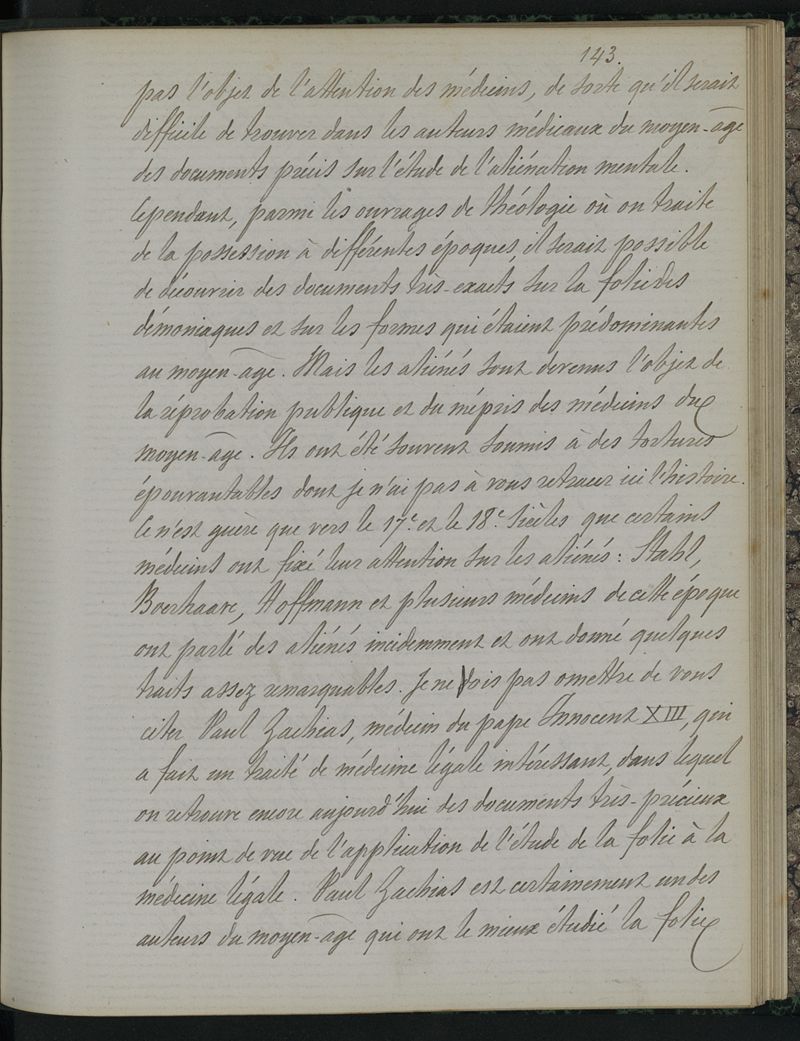 143.
pas l'objet de l'attention des médecins, de sorte qu'il serait
difficile de trouver dans les auteurs médicaux du moyen-âge
des documents précis sur l'étude de l'aliénation mentale.
Cependant, parmi les ouvrages de théologie où on traite
de la possession à différentes époques, il serait possible
de découvrir des documents très-exacts sur la folie des
démoniaques et sur les formes qui étaient prédominantes
au moyen-âge. Mais les aliénés sont devenus l'objet de
la réprobation publique et du mépris des médecins du
moyen-âge. Ils ont été souvent soumis à des tortures
épouvantables dont je n'ai pas à vous retracer ici l'histoire.
Ce n'est guère que vers le 17e. et le 18e. siècles que certains
médecins ont fixé leur attention sur les aliénés : Stahl,
Boerhaave, Hoffmann et plusieurs médecins de cette époque
ont parlé des aliénés incidemment et ont donné quelques
traits assez remarquables. Je ne dois pas omettre de vous
citer Paul Zachias, médecin du pape Innocent XIII, qui
a fait un traité de médecine légale intéressant, dans lequel
on retrouve encore aujourd'hui des documents très-précieux
au point de vue de l'application de l'étude de la folie à la
médecine légale. Paul Zachias est certainement un des
auteurs du moyen-âge qui ont le mieux étudié la folie